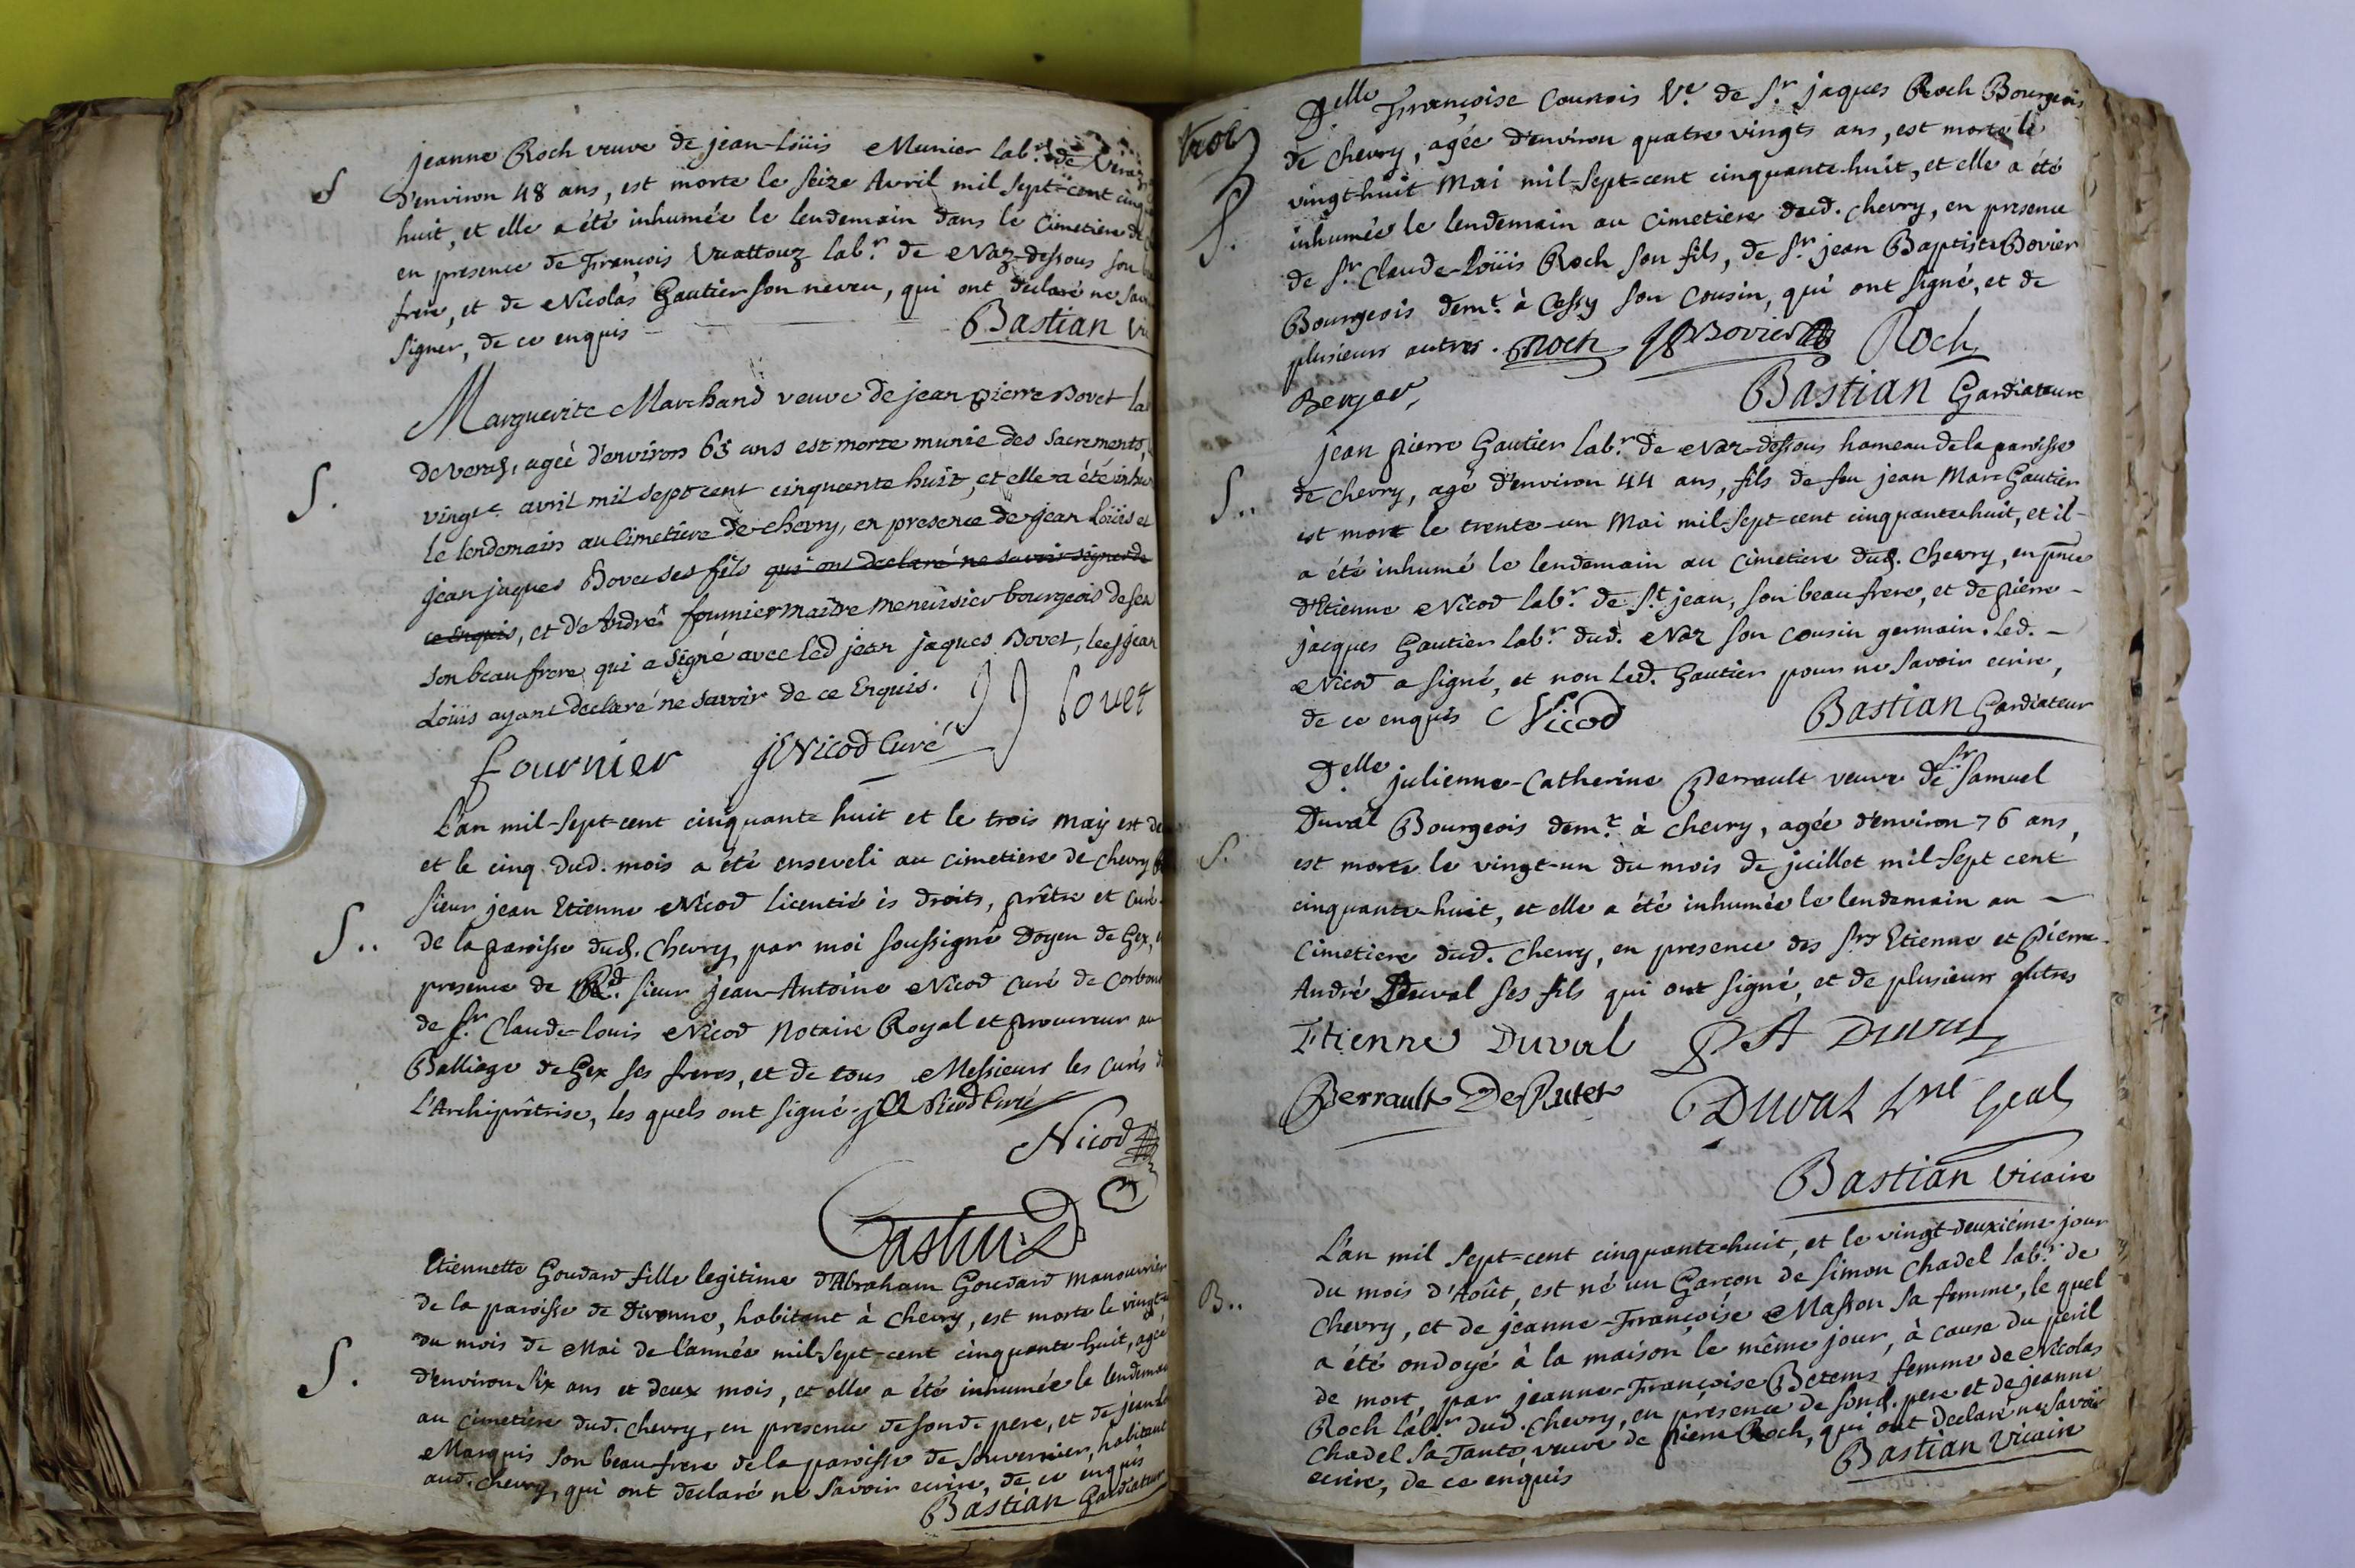 jeanne Roch veuve de jean-Loüis Munier labr. de Veraz
S
d'environ 48 ans, est morte le seize Avril mil sept-cent cinq
huit, et elle a été inhumée le lendemain dans le Cimetiere de
en presence de François Vuattouz labr. de Naz-dessous son
frere, et de Nicolas Gautier son neveu, qui ont declaré ne
signer, de ce enquis
Bastian
Marguerite Marchand veuve de jean pierre Bovet la
S.
de veraz, ageé d'environ 65 ans est morte munie des sacrements,
vingt avril mil sept cent cinquante huit, et elle a été inhu
le lendemain au Cimetiere de chevry, en presence de jean Loüis et
jean jaques Bovet ses fils qui ont declaré ne savoir signer de
ce Enquis, et d'André fournier maitre menüisier bourgeois de
son beau frere qui a signé avec led jean jaques Bovet, jean
Loüis ayant declaré ne savoir de ce Enquis.
JJ bovet
fournier jE Nicod Curé
L'an mil-sept-cent cinquante huit et le trois may est
et le cinq dud. mois a été enseveli au cimetiere de Chevry
sieur jean Etienne Nicod Licentié ès droits, prêtre et Curé
S..
de la paroisse dud. Chevry, par moi soussigné Doyen de Gex,
presence de Rd. sieur jean-Antoine Nicod curé de
de Sr. Claude-louis Nicod Notaire Royal et procureur au
Balliage de Gex ses freres, et de tous Messieurs les curés
L'Archiprêtrise, les quels ont signé. jA Nicod Curé
Nicod
Etiennette Goudard fille legitime d'Abraham Goudard manouvrier
de la paroisse de Divonne, habitant à Chevry, est morte le
du mois de Mai de l'année mil-sept-cent cinquante-huit, agée
S.
d'environ six ans et deux mois, et elle a été inhumée le lendemain
au cimetiere dud. Chevry, en presence de sond. pere, et de
Marquis son beau frere de la paroisse de Sauvernier, habitant
aud. chevry, qui ont declaré ne savoir ecrire, de ce enquis
Bastian Gardiateur
Delle. Françoise Courtois Ve. de Sr. jaques Roch Bourgeois
de Chevry, agée d'environ quatre vingts ans, est morte le
vingt-huit Mai mil-sept-cent cinquante-huit, et elle a été
S.
inhumée le lendemain au cimetiere dud. chevry, en presence
de Sr. Claude-Loüis Roch son fils, de Sr. jean Baptiste Bovier
Bourgeois demt. à Cessy son Cousin, qui ont signé, et de
plusieurs autres. Roch JB Bovier Roch
Berger,
Bastian Gardiateur
jean pierre Gautier labr. de Naz-dessous hameau de la paroisse
S..
de chevry, agé d'environ 44 ans, fils de feu jean Marc Gautier
est mort le trente-un Mai mil-sept-cent cinquante-huit, et il-
a été inhumé le lendemain au cimetiere dud. Chevry, en pnce
d'Etienne Nicod labr. de St. jean, son beau frere, et de pierre-
jacques Gautier labr dud. Naz son cousin germain. Led. -
Nicod a signé, et non led. Gautier pour ne savoir ecrire,
de ce enquis Nicod
Bastian Gardiateur
Delle. julienne-Catherine Perrault veuve de Sr. Samuel
Duval Bourgeois demt. à chevry, agée d'environ 76 ans,
S.
est morte le vingt-un du mois de juillet mil-sept cent
cinquante-huit, et elle a été inhumée le lendemain au -
cimetiere dud. chevry, en presence des Srs Etienne et pierre-
André Duval ses fils qui ont signé, et de plusieurs autres
Etienne Duval PA Duval
Perrault De Rutet Duval
Bastian Vicaire
L'an mil sept-cent cinquante-huit, et le vingt-deuxiéme jour
du mois d'Août, est né un Garçon de simon Chadel labr. de
B..
Chevry, et de jeanne-Françoise Masson sa femme, le quel
a été ondoyé à la maison le même jour, à cause du peril
de mort, par jeanne-Françoise Betems femme de Nicolas
Roch labr dud. Chevry, en présence de sond. pere et de jeanne
Chadel sa Tante, veuve de pierre Roch, qui ont declaré ne savoir
ecrire, de ce enquis
Bastian Vicaire